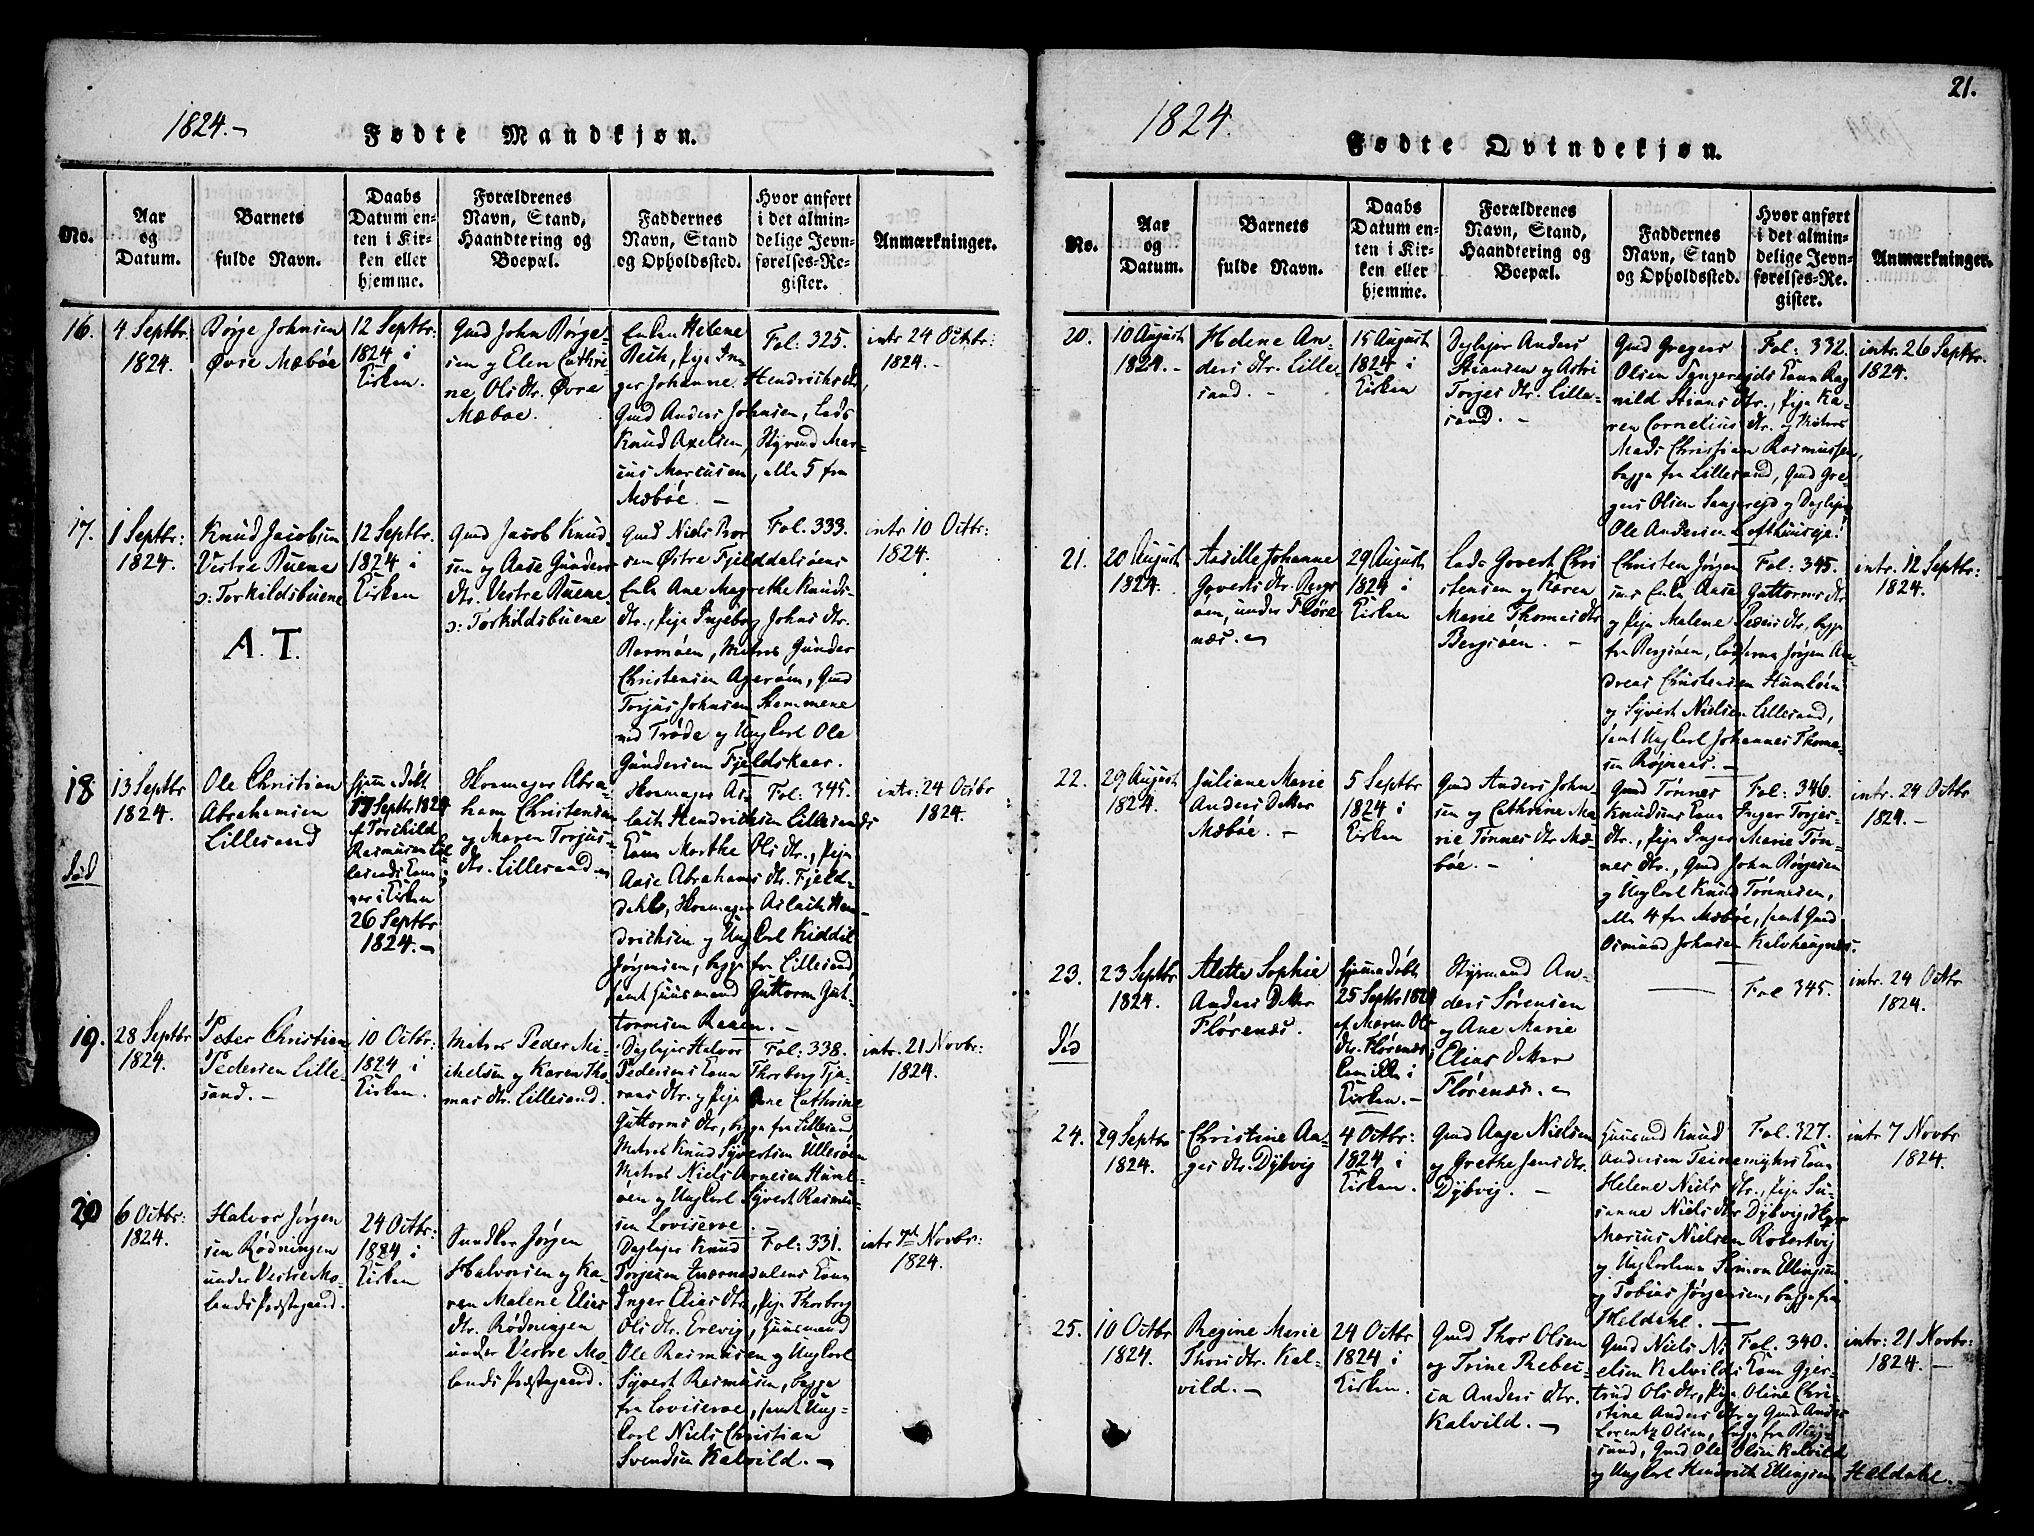 1824.-
Fødte Mandkjøn.
No.
Aar
og
Datum.
Barnets
fulde Navn.
Daabs
Datum en-
ten i Kir-
ken eller
hjemme.
Forældrenes
Navn, Stand,
Haandtering og
Boepæl.
Faddernes
Navn, Stand
og Opholdssted.
Hvor anført
i det almin-
delige Jevn-
førelses-Re-
gister.
Anmærkninger.
16.
4 Septbr
1824.
Børge Johnsen
Øvre Mæbøe
12 Septbr:
1824 i
Kirken.
Gmd John Børge-
sen og Elen Cathri-
ne Ols dtr. Øvre
Mæbøe.
Enken Helene
Beth, Pige In-
ger Johanne Hendrichs dtr,
Gmd Anders Johnsen, Lods
Knud Axelsen, Styrmd Mar-
cus Marcusen, alle 5 fra
Mæbøe. -
Fol: 325.
intr 24 Octbr:
1824. -
17.
1 Septbr:
1824.
Knud Jacobsen
Vestre Buene
ɔ: Torkildsbuene
A. T.
12 Septbr.
1824 i
Kirken
Gmd Jacob Knud-
sen og Aase Gunders
dtr. Vestre Buene
ɔ: Torkildsbuene
Gmd Niels Tor-
sen Østre Fjelddalsøens
Enke Ane Magrethe Knuds-
dtr., Pige Ingeborg Johns dtr.
Ramsøen, Matros Gunder
Christensen Agerøen, Gmd
Torjus Johnsen Stemmene
ved Trøde og Ung Carl Ole
Gundersen Fjeldskaar.
Fol: 333.
intr 10 Octbr:
1824.
18
død
13 Septbr
1824.
Ole Christian
Abrahamsen
Lillesand
hjemmedøbt
17 Septbr 1824
af Torkild
Rasmusen Lil-
lesands Kone
var i Kirken
26 Septbr
1824.-
Skomager Abra-
ham Christensen
og Maren Torjus-
dtr. Lillesand.
Skomager As-
lach Hendrichsen Lillesands
Kone Marthe Ols dtr., Pige
Aase Abrahams dtr. Fjeld-
dahl, Skomager Aslach Hen-
drichsen og Ung Carl Kiddil
Jørgensen, begge fra Lillesand,
samt Huusmand Guttorm Gut-
tormsen Raaen. -
Fol: 345.
intr: 24 Octbr
1824.
19.
28 Septbr
1824.
Peter Christian
Pedersen Lille-
sand. -
10 Octbr:
1824 i
Kirken.
Matros Peder Mi-
chelsen og Karen Tho-
mas dtr. Lillesand.
Deylejer Halvor
Pedersens Kone Thorborg Tja-
raas dtr. og Pige Ane Cathrine
Guttorms dtr, begge fra Lillesand
Matros Knud Syvertsen Ulløen
Matros Niels Arnesen Humle-
øen og Ung Carl Syvert Rasmu-
sen Loviseroe.
Fol: 338.
intr. 21 Novbr:
1824.
20
6 Octbr:
1824.
Halvor Jørgen
sen Rødningen
under Vestre Mo-
lands Præstegaard.
24 Octbr:
1824 i
Kirken
Snedker Jørgen
Halvorsen og Ka-
ren Malene Elias
dtr. Rødningen
under Vestre Mo-
lands Præstegaard.
Deylejer Knud
Torjesen Inærnedalens Kone
Inger Elias dtr, Pige Thorborg
Ols dtr. Erevig, Huusmand
Ole Rasmusen og Ung Carl
Syvert Rasmusen, begge
fra Loviseroe, samt Ung-
Carl Niels Christian
Svendsen Kalvild. -
Fol: 331.
intr 7de Novbr:
1824.
21.
1824.
Fødte Qvindekjøn.
No.
Aar
og
Datum.
Barnets
fulde Navn.
Daabs
Datum en-
ten i Kir-
ken eller
hjemme.
Forældrenes
Navn, Stand,
Haandtering og
Boepæl.
Faddernes
Navn, Stand
og Opholdssted.
Hvor anført
i det almin-
delige Jevn-
førelses-Re-
gister.
Anmærkninger.
20.
10 August
1824. -
Helene An-
ders dtr. Lille-
sand. -
15 August
1824 i
Kirken
Deylejer Anders
Stiansen og Astri
Torjes dtr. Lille-
sand. -
Gmd Gregers
Olsen Tyngereids Kone Rag-
nild Stians dtr., Pige Ka-
ren Cornelius dtr. og Matros
Mads Christian Rasmussen,
begge fra Lillesand, Gmd Gre-
gers Olsen Sangereid og Deylejer
Ole Andersen Lofthuuseje.
Fol: 332.
intr. 26 Septbr.
1824.
21.
20 August
1824.
Aasille Johanne
Goverts dtr. Bergs
øen, under Fløre
næs. -
29 August
1824 i
Kirken
Lods Govert Chri
stensen og Karen
Marie Thomas dtr
Bergsøen. -
Christen Jørgen
sens Enke Aase Guttorms dtr
og Pige Malene Peders dtr, begge
fra Bergsøen, Lodserne Jørgen An-
dreas Christensen Humløen
og Syvert Nielsen Lillesand,
samt Ung Carl Johannes Thoma-
sen Røynaas. -
Fol: 345.
intr: 12 Septbr:
1824.
22.
29 August
1824.
Juliane Marie
Anders Datter
Mæbøe. -
5 Septbr
1824 i
Kirken
Gmd Anders John
sen og Cathrine Ma-
rie Tønnes dtr Mæ-
bøe. -
Gmd Tønnes
Knudsens Kone Inger Torjes-
dtr., Pige Inger Marie Tøn-
nes dtr., Gmd John Børgesen
og Ung Carl Knud Tønnesen,
alle 4 fra Mæbøe, samt Gmd
Osmund Johnsen Kalvehaugnæs.
Fol: 346.
intr. 24 Octbr
1824. -
23.
død
23 Septbr
1824.
Alette Sophie
Anders Datter
Florenæs.
hjemmedøbt
25 Septbr 1824
af Maren Ols
dtr. Florenæs
Kom ikke i
Kirken. -
Styrmand An-
ders Sørensen
og Ane Marie
Elias Datter
Florenæs. -
Fol 345.
intr. 24 Octbr
1824.
24.
29 Septbr
1824.
Christine An-
ges dtr. Dybvig
4 Octbr:
1824 i
Kirken.
Gmd Aage Nielsen
og Grethe Jens dtr.
Dybvig. -
Huusmd Knud
Andersen Teinemyhrs Kone
Helene Niels dtr., Pige Su-
sanne Niels dtr Dybvig, Skpr
Marius Nielsen Robertvig
og Ung Carlene Simon Ellingsen
og Tobias Jørgensen, begge fra
Heldahl. -
Fol. 327.
intr 7 Novbr
1824.
25.
10 Octbr
1824.
Regine Marie
Thors dtr. Kal-
vild. -
24 Octbr
1824 i
Kirken.
Gmd Thor Olsen
og Trine Rebec-
ca Anders dtr.
Kalvild. -
Gmd Niels Ni-
elsen Kalvilds Kone Gjer-
trud Ols dtr, Pige Oline Chri-
stine Anders dtr og Gmd Anders
Lorentz Olsen, begge fra Bog-
sund, Gmd Ole Olsen Kalvild
og Ung Carl Hendrich Ellingsen Heldahl. -
Fol. 340.
intr: 21 Novbr:
1824. -